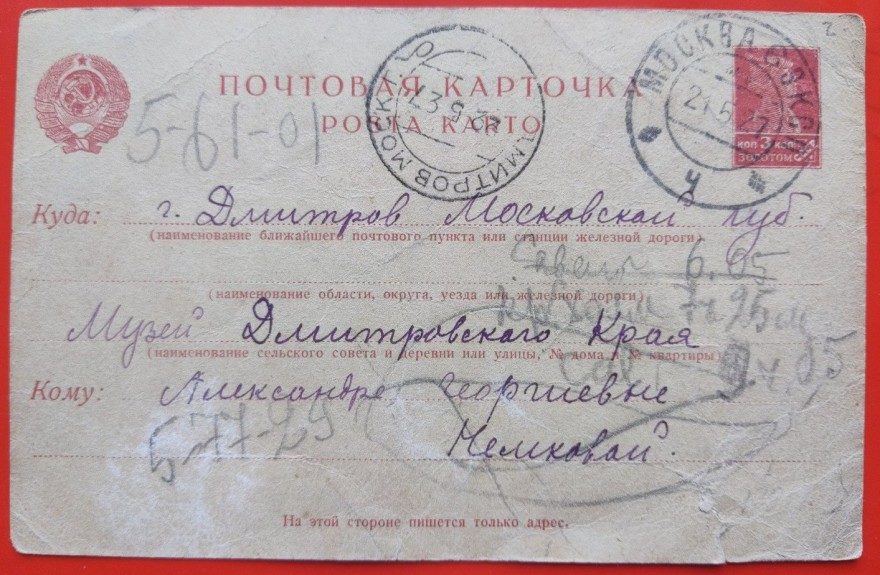 ПОЧТОВАЯ КАРТОЧКА
POŜTA KARTO
5-61-01
ДМИТРОВ МОСК
МОСКВА
21.5.27
коп 3 коп
ЗОЛОТОМ
Куда: г. Дмитров Московской губ.
(наименование ближайшего почтового пункта или станции железной дороги)
6.05
(наименование области, округа, уезда или железной дороги)
Музей Дмитровского Края
(наименование сельского совета и деревни или улицы, № дома и № квартиры)
Кому: Александре Георгиевне
5-77-29
На этой стороне пишется только адрес.